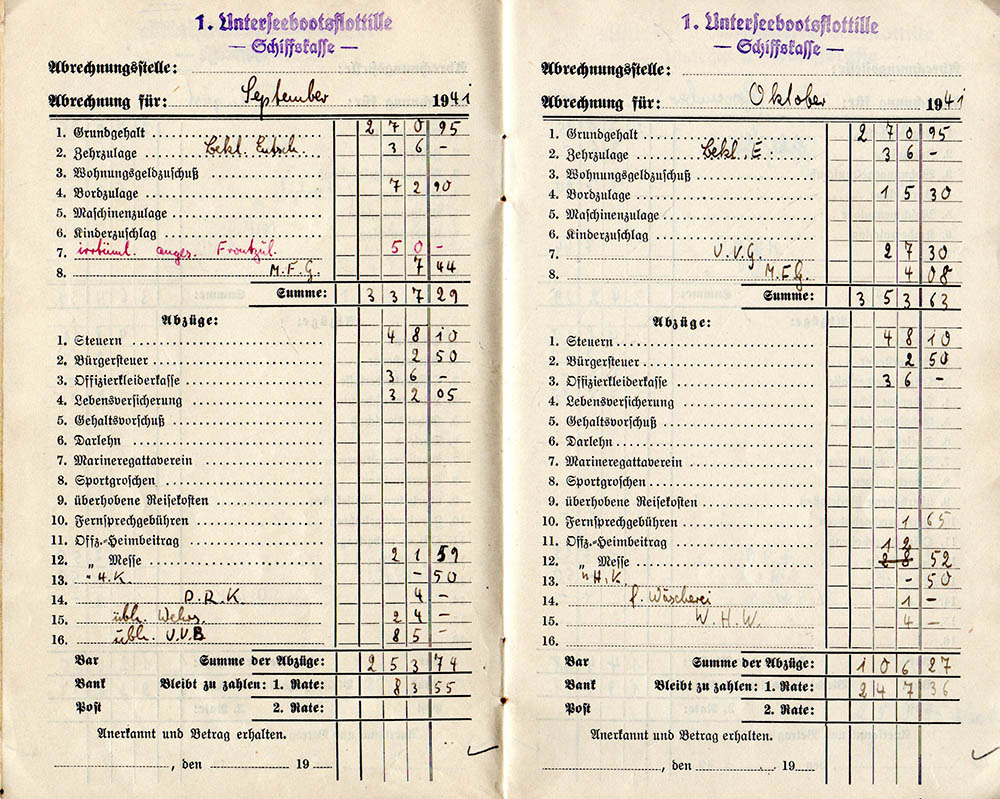 1. Unterseebootsflottille
— Schiffskasse —
Abrechnungsstelle:
Abrechnung für: September 1941
1. Grundgehalt 270 95
2. Zehrzulage Bekl. Entsch. 36 -
3. Wohnungsgeldzuschuß
4. Bordzulage 72 90
5. Maschinenzulage
6. Kinderzuschlag
7. irrtüml. angew. Frontzul. 50 -
8. M.F.G. 7 44
Summe: 337 29
Abzüge:
1. Steuern 48 10
2. Bürgersteuer 2 50
3. Offizierkleiderkasse 36 -
4. Lebensversicherung 32 05
5. Gehaltsvorschuß
6. Darlehn
7. Marineregattaverein
8. Sportgroschen
9. überhobene Reisekosten
10. Fernsprechgebühren
11. Offz.-Heimbeitrag
12. „ Messe 21 59
13. " H.K. - 50
14. D.R.K. 4 -
15. übh. 24 -
16. übh. V.V.B 85 -
Bar Summe der Abzüge: 253 74
Bank Bleibt zu zahlen: 1. Rate: 83 55
Post 2. Rate:
Anerkannt und Betrag erhalten.
, den 19
1. Unterseebootsflottille
— Schiffskasse —
Abrechnungsstelle:
Abrechnung für: Oktober 1941
1. Grundgehalt 270 95
2. Zehrzulage Bekl. E. 36 -
3. Wohnungsgeldzuschuß
4. Bordzulage 15 30
5. Maschinenzulage
6. Kinderzuschlag
7. V.V.G. 27 30
8. M.F.G. 4 08
Summe: 353 63
Abzüge:
1. Steuern 48 10
2. Bürgersteuer 2 50
3. Offizierkleiderkasse 36 -
4. Lebensversicherung
5. Gehaltsvorschuß
6. Darlehn
7. Marineregattaverein
8. Sportgroschen
9. überhobene Reisekosten
10. Fernsprechgebühren 1 65
11. Offz.-Heimbeitrag
12. „ Messe 12 52
13. " H.K. - 50
14. f. Wäscherei 1 -
15. W.H.W. 4 -
16.
Bar Summe der Abzüge: 106 27
Bank Bleibt zu zahlen: 1. Rate: 247 36
Post 2. Rate:
Anerkannt und Betrag erhalten.
, den 19